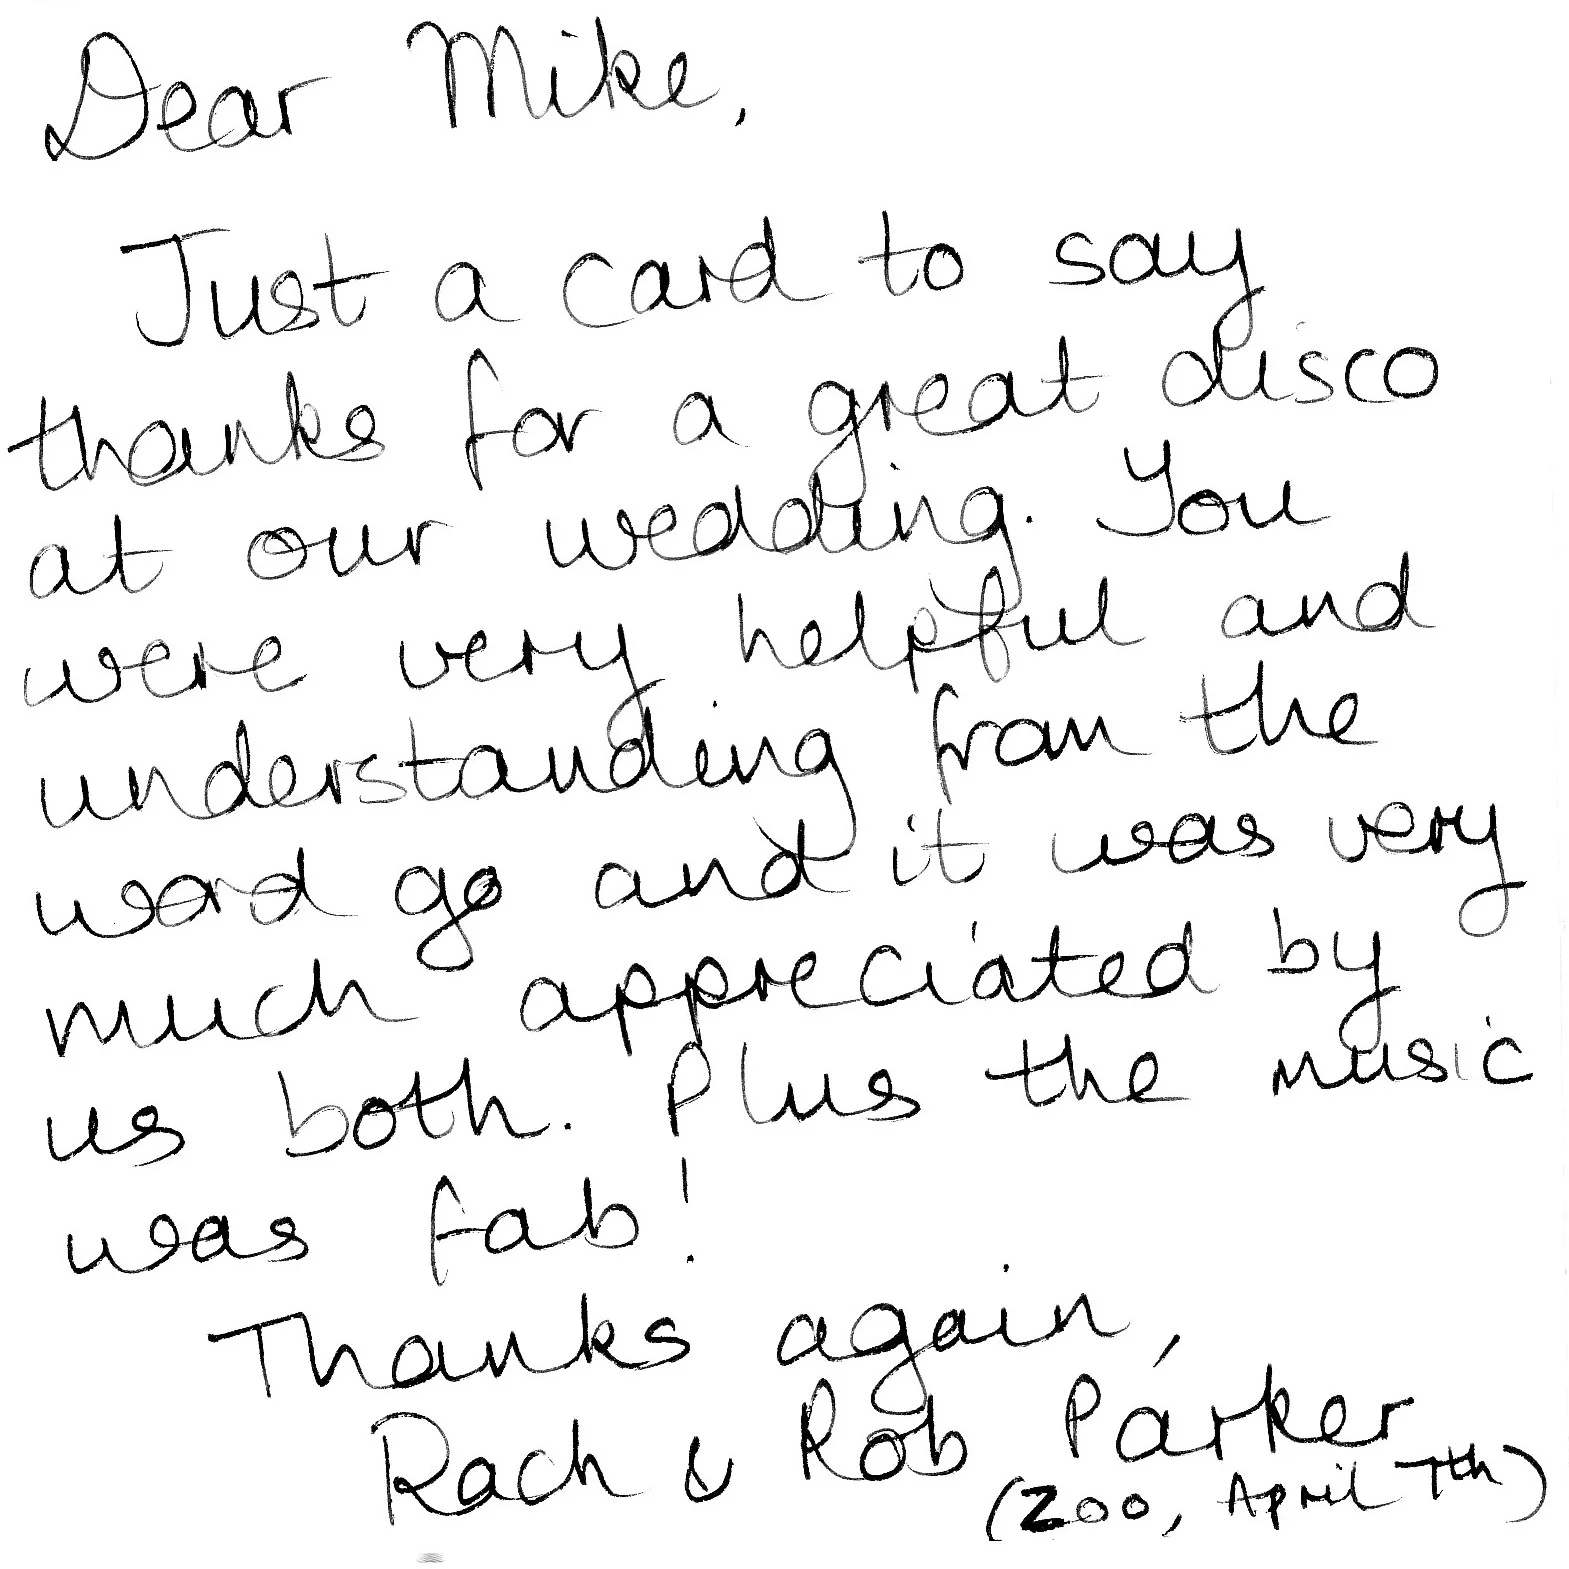 Dear Mike,
Just a card to say
thanks for a great disco
at our wedding. You
were very helpful and
understanding from the
word go and it was very
much appreciated by
us both. Plus the music
was fab!
Thanks again,
Rach & Rob Parker
(Zoo, April 7th)